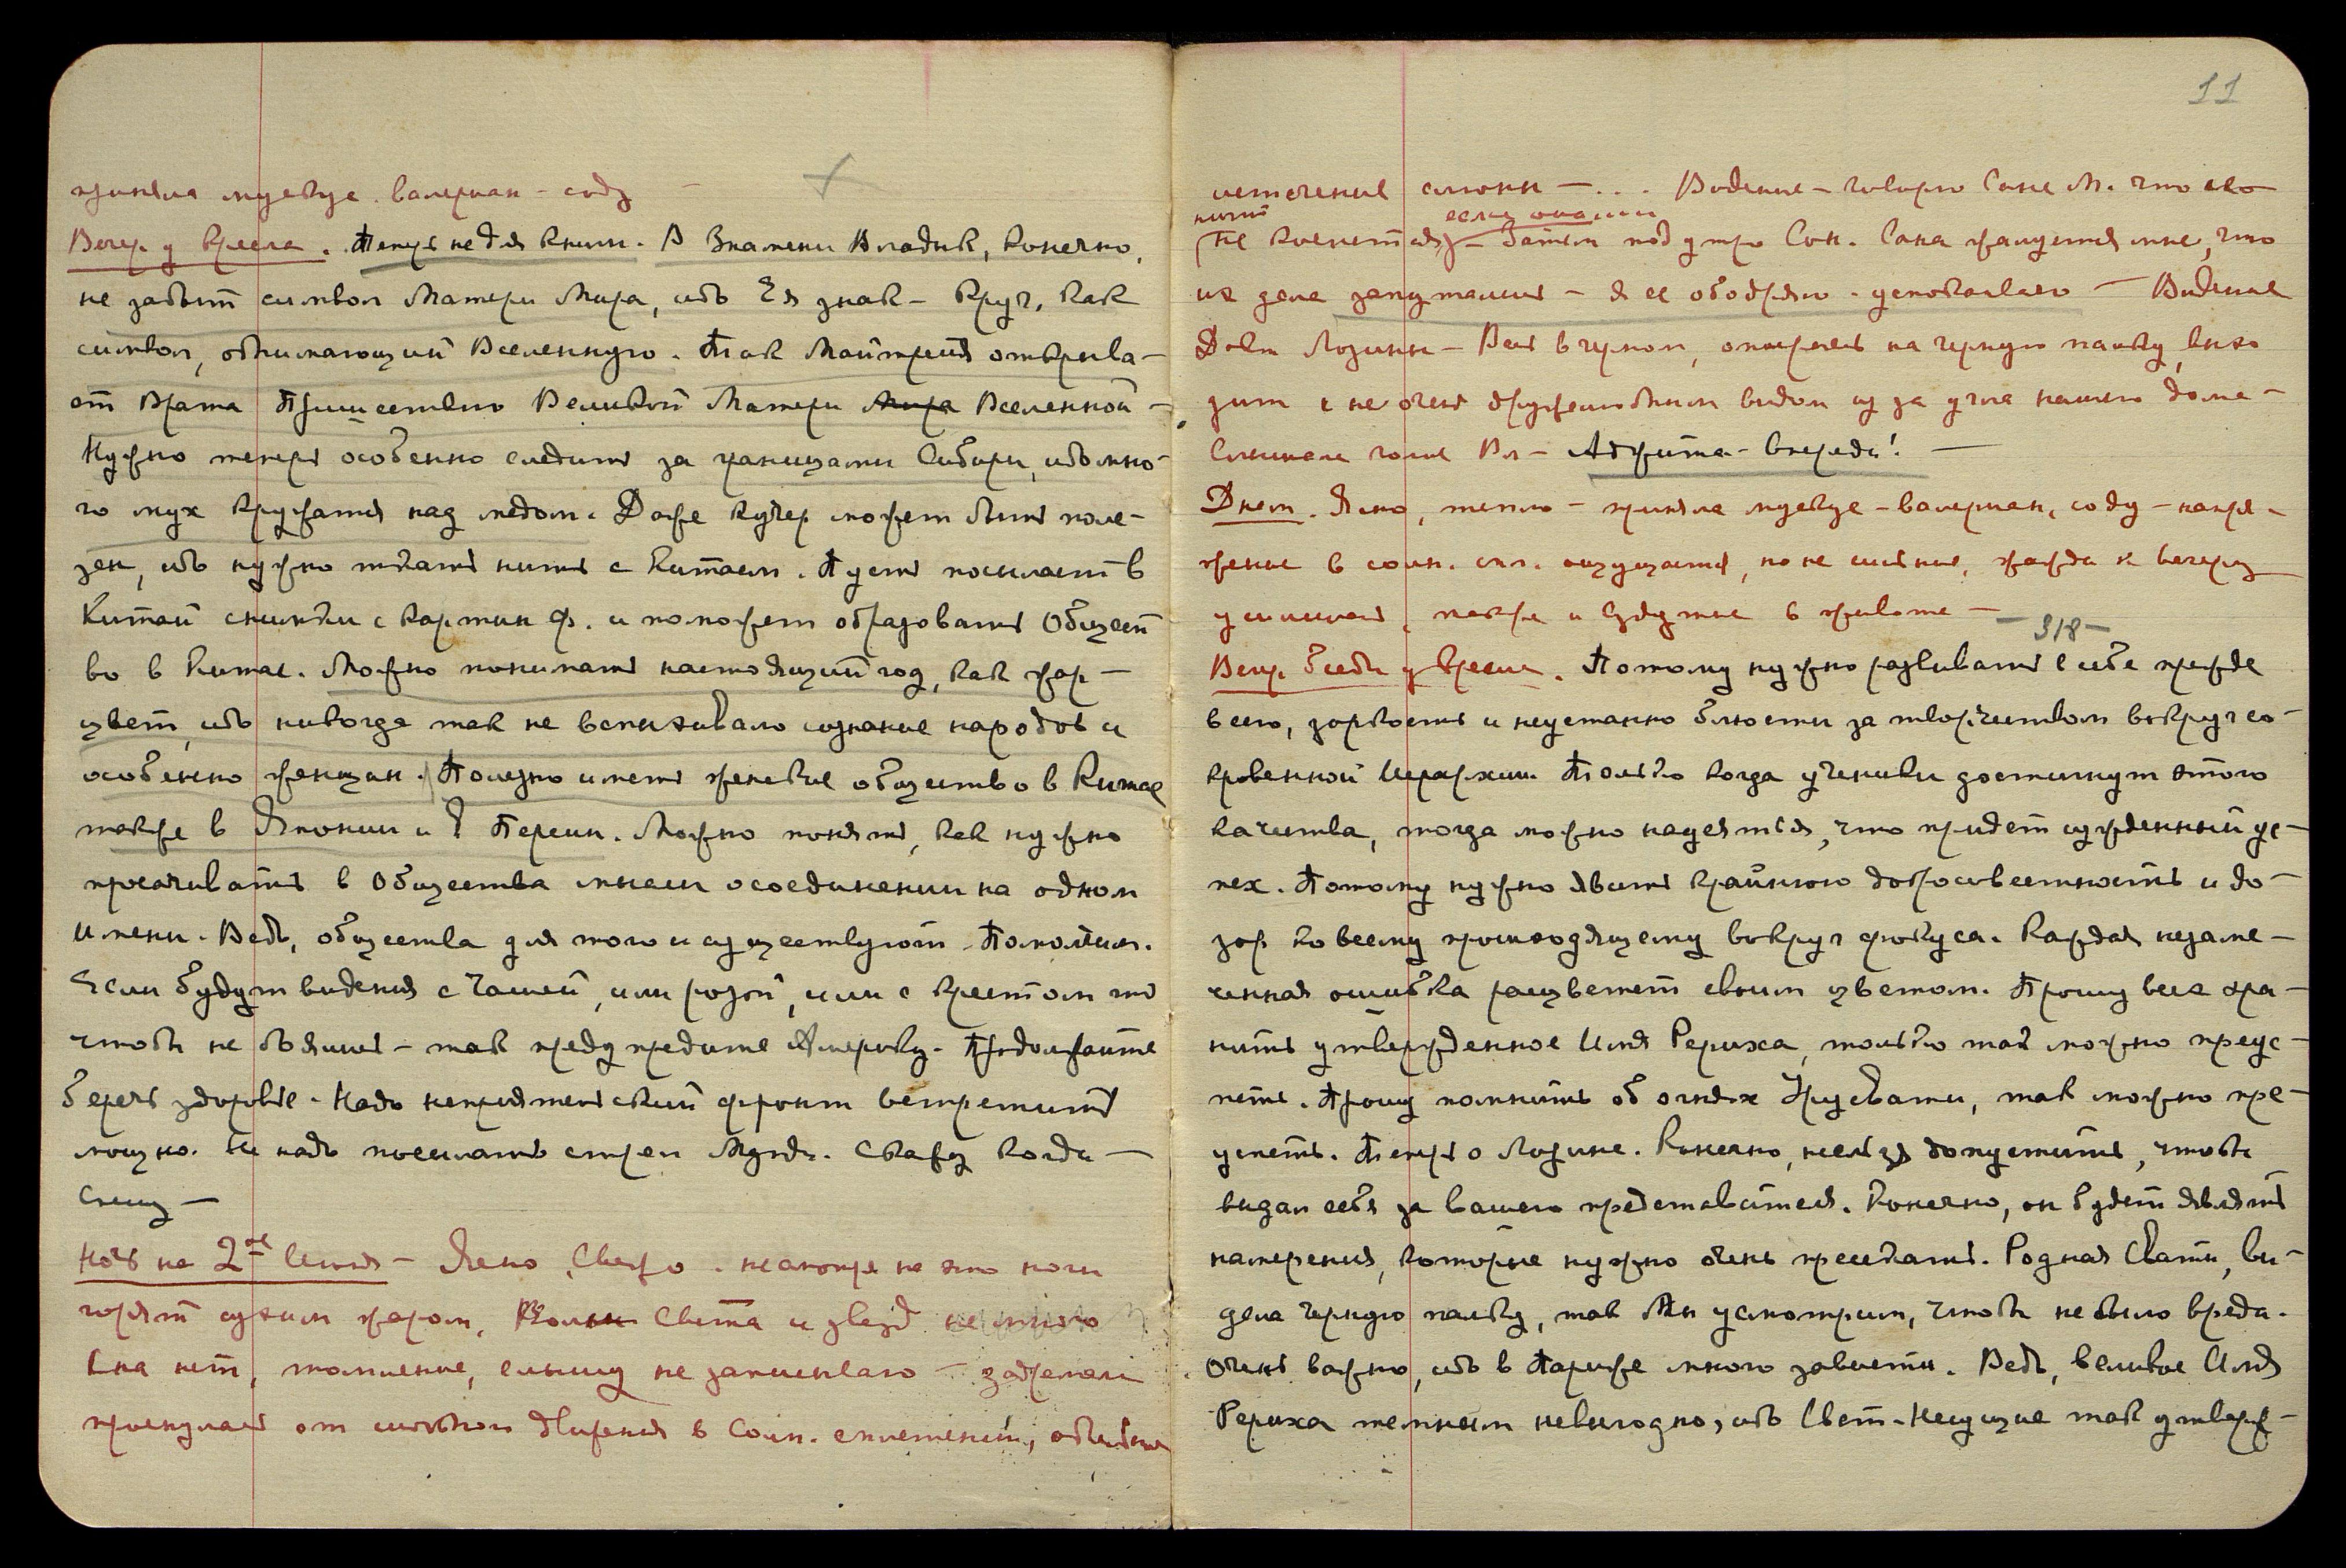 приняла мускус. валериан – соду –
Вечер. у кресла. Теперь не для книги. В Знамени Владык, конечно,
не забыт символ Матери Мира, ибо Её знак – круг, как
символ, обнимающий Вселенную. Так Майтрейя открыва–
ет Врата Пришествию Великой Матери Мира Вселенной –
Нужно теперь особенно следить за границами Сибири, ибо мно–
го мух кружатся над медом. Даже кучер может быть поле–
зен, ибо нужно ткать нить с Китаем. Пусть посылает в
Китай снимки с картин Ф. и поможет образовать Общест
во в Китае. Можно понимать настоящий год, как жар–
цвет, ибо никогда так не вспыхивало сознание народов и
особенно женщин. Полезно иметь женское общество в Китае
также в Японии и в Персии. Можно понять, как нужно
просачивать в Общества мысли о соединении на одном
Имени. Ведь, общества для того и существуют. Помолчим.
Если будут видения с Чашей, или розой, или с крестом то
чтобы не боялись – так предупредите Америку. Продолжайте
беречь здоровье. Надо неприятельский фронт встретить
мощно. И надо посылать стрел Мудр. Скажу когда –
Спешу –
Ночь на 2ое Июня – Ясно, Свежо. несмотря на это ноги
горят сухим жаром, Волны Света и звезд немного
Сна нет, томление, слышу не записываю – задремала
проснулась от сильного движения в Солн. сплетении, обильное
11
истечение слюны – ... Видение – говорю Сане М. что его
нить если она
(не коснется) – Затем под утро Сон. Сана жалуется мне, что
их дела запутались – я ее ободряю. успокаиваю – Видение
Два Лозины – Весь в черном, опираясь на черную палку, выхо
дит с не очень дружелюбным видом из за угла нашего дома –
Слышала голос Вл – Аджита – впереди! –
Днем. Ясно, тепло – приняла мускус – валериан, соду – напря–
жение в солн. спл. ощущается, но не сильное, жажда к вечеру
усилилась, также и вздутие в животе –
– 318 –
Вечер. беседы у кресла. Потому нужно развивать в себе прежде
всего, зоркость и неустанно блюсти за творчеством вокруг со–
кровенной Иерархии. Только когда ученики достигнут этого
качества, тогда можно надеяться, что придет сужденный ус–
пех. Потому нужно явить крайнюю добросовестность и до–
зор ко всему происходящему вокруг фокуса. Каждая незаме–
ченная ошибка расцветет своим цветом. Прошу всех хра–
нить утвержденное Имя Рериха, только так можно преус–
петь. Прошу помнить об огнях Урусвати, так можно пре–
успеть. Теперь о Лозине. Конечно, нельзя допустить, чтобы
выдал себя за вашего представителя. Конечно, он будет являть
намерения, которые нужно очень пресекать. Родная Свати, ви–
дела черную палку, так Мы усмотрим, чтобы не было вреда.
Очень важно, ибо в Париже много зависти. Ведь, великое Имя
Рериха темным невыгодно, ибо Свет–Несущие так утверж–